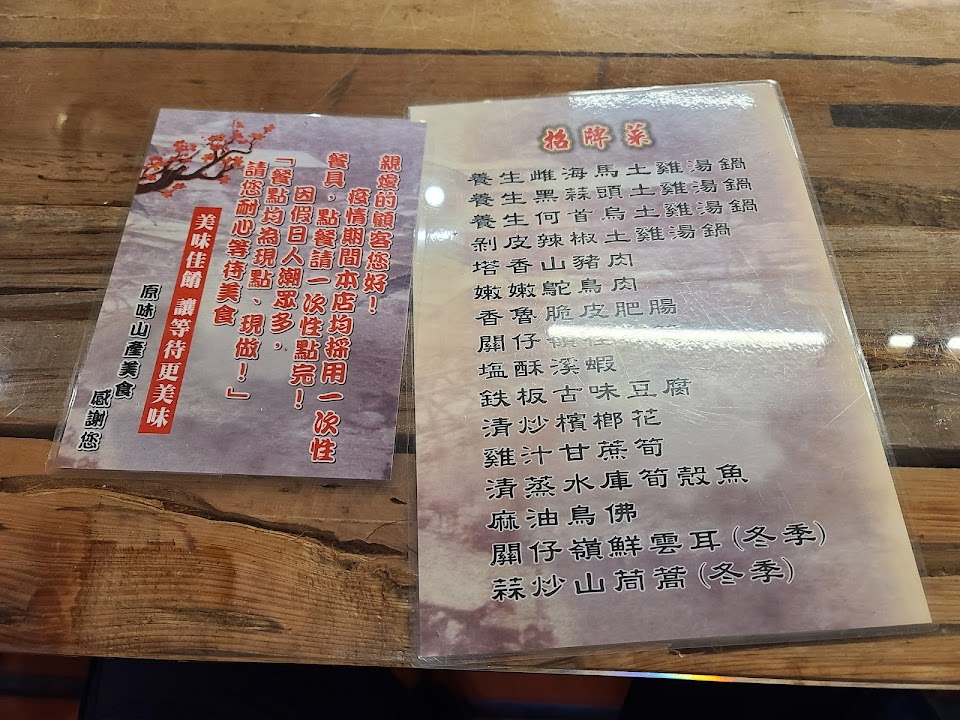 親愛的顧客您好！
疫情期間本店均採用一次性
餐具，點餐請一次性點完！
因假日人潮眾多，
「餐點均為現點、現做！」
請您耐心等待美食
美味佳餚 讓等待更美味
原味山產美食
感謝您
招牌菜
養生雌海馬土雞湯鍋
養生黑蒜頭土雞湯鍋
養生何首烏土雞湯鍋
剝皮辣椒土雞湯鍋
塔香山豬肉
嫩嫩鴕鳥肉
香魯脆皮肥腸
關仔嶺
塩酥溪蝦
鉄板古味豆腐
清炒檳榔花
雞汁甘蔗筍
清蒸水庫筍殼魚
麻油鳥佛
關仔嶺鮮雲耳(冬季)
蒜炒山茼蒿(冬季)